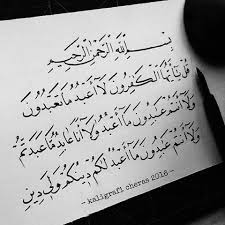 بِسْمِ اللَّهِ الرَّحْمَٰنِ الرَّحِيمِ
قُلْ يَٰٓأَيُّهَا الْكَٰفِرُونَ لَآ أَعْبُدُ مَا تَعْبُدُونَ
وَلَآ أَنتُمْ عَٰبِدُونَ مَآ أَعْبُدُ وَلَآ أَنَا۠ عَابِدٌ مَّا عَبَدتُّمْ
وَلَآ أَنتُمْ عَٰبِدُونَ مَآ أَعْبُدُ لَكُمْ دِينُكُمْ وَلِيَ دِينِ
- kaligrafi cheras 2016 -